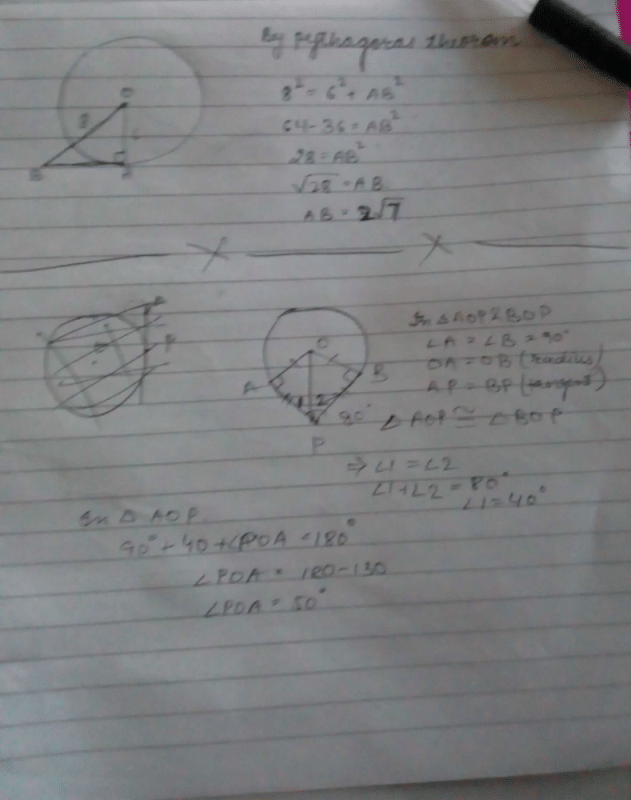 By pythagoras theorem
O
8
6
B
A
8² = 6² + AB²
64 - 36 = AB²
28 = AB²
√28 = AB
AB = 2√7
P
O
A
B
1 2
80°
P
In △AOP & BOP
∠A = ∠B = 90°
OA = OB (radius)
AP = BP (tangent)
△AOP ≅ △BOP
⇒ ∠1 = ∠2
∠1+∠2 = 80°
∠1 = 40°
In △ AOP
90° + 40 + ∠POA = 180°
∠POA = 180-130
∠POA = 50°